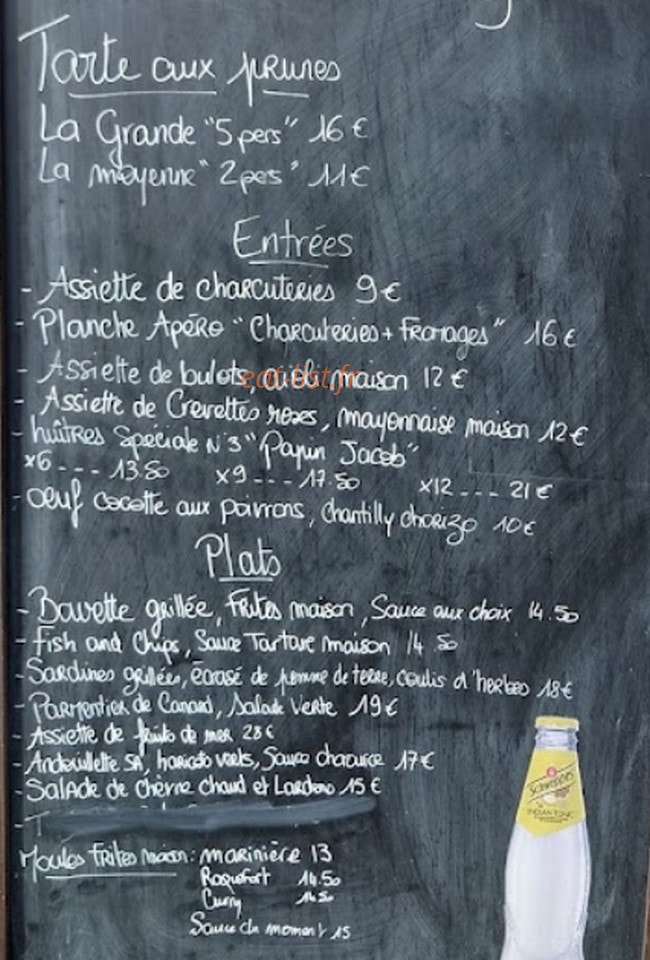 Tarte aux prunes
La Grande "5 pers" 16€
La moyenne "2 pers" 11€
Entrées
- Assiette de charcuteries 9€
- Planche Apéro "Charcuteries + Fromages" 16€
- Assiette de bulots, aïoli maison 12€
eat-list.fr
- Assiette de Crevettes roses, mayonnaise maison 12€
- huîtres Spéciale N°3 "Papin Jacob"
x6 --- 13.50 x9 --- 17.50 x12 --- 21€
- oeuf cocotte aux poivrons, chantilly chorizo 10€
Plats
- Bavette grillée, Frites maison, Sauce aux choix 14.50
- Fish and Chips, Sauce Tartare maison 14.50
- Sardines grillées, écrasé de pomme de terre, coulis d'herbes 18€
- Parmentier de Canard, Salade Verte 19€
- Assiette de fruits de mer 28€
- Andouillette 5A, haricots verts, Sauce charcuière 17€
- Salade de Chèvre chaud et Lardons 15€
-
Moules frites maison: marinière 13
Roquefort 14.50
Curry 14.50
Sauce du moment 15
Schweppes
INDIAN TONIC